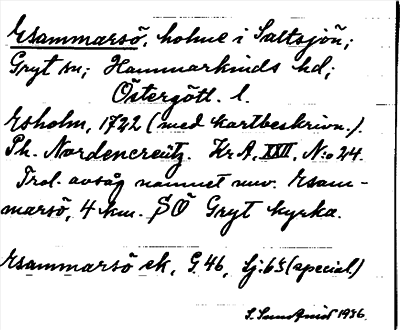 Esammarsö, holme i Saltsjön;
Gryt sn; Hammarkinds hd;
Östergötl. l.
Esholm, 1722 (med kartbeskrivn.).
Ph. Nordencreütz. Kr.A, XXII, N:o 24.
Trol. avsåg namnet nuv. Esam-
marsö, 4 km. SÖ Gryt kyrka.
Esammarsö ek, G. 46, Lj:65 (special)
1936.